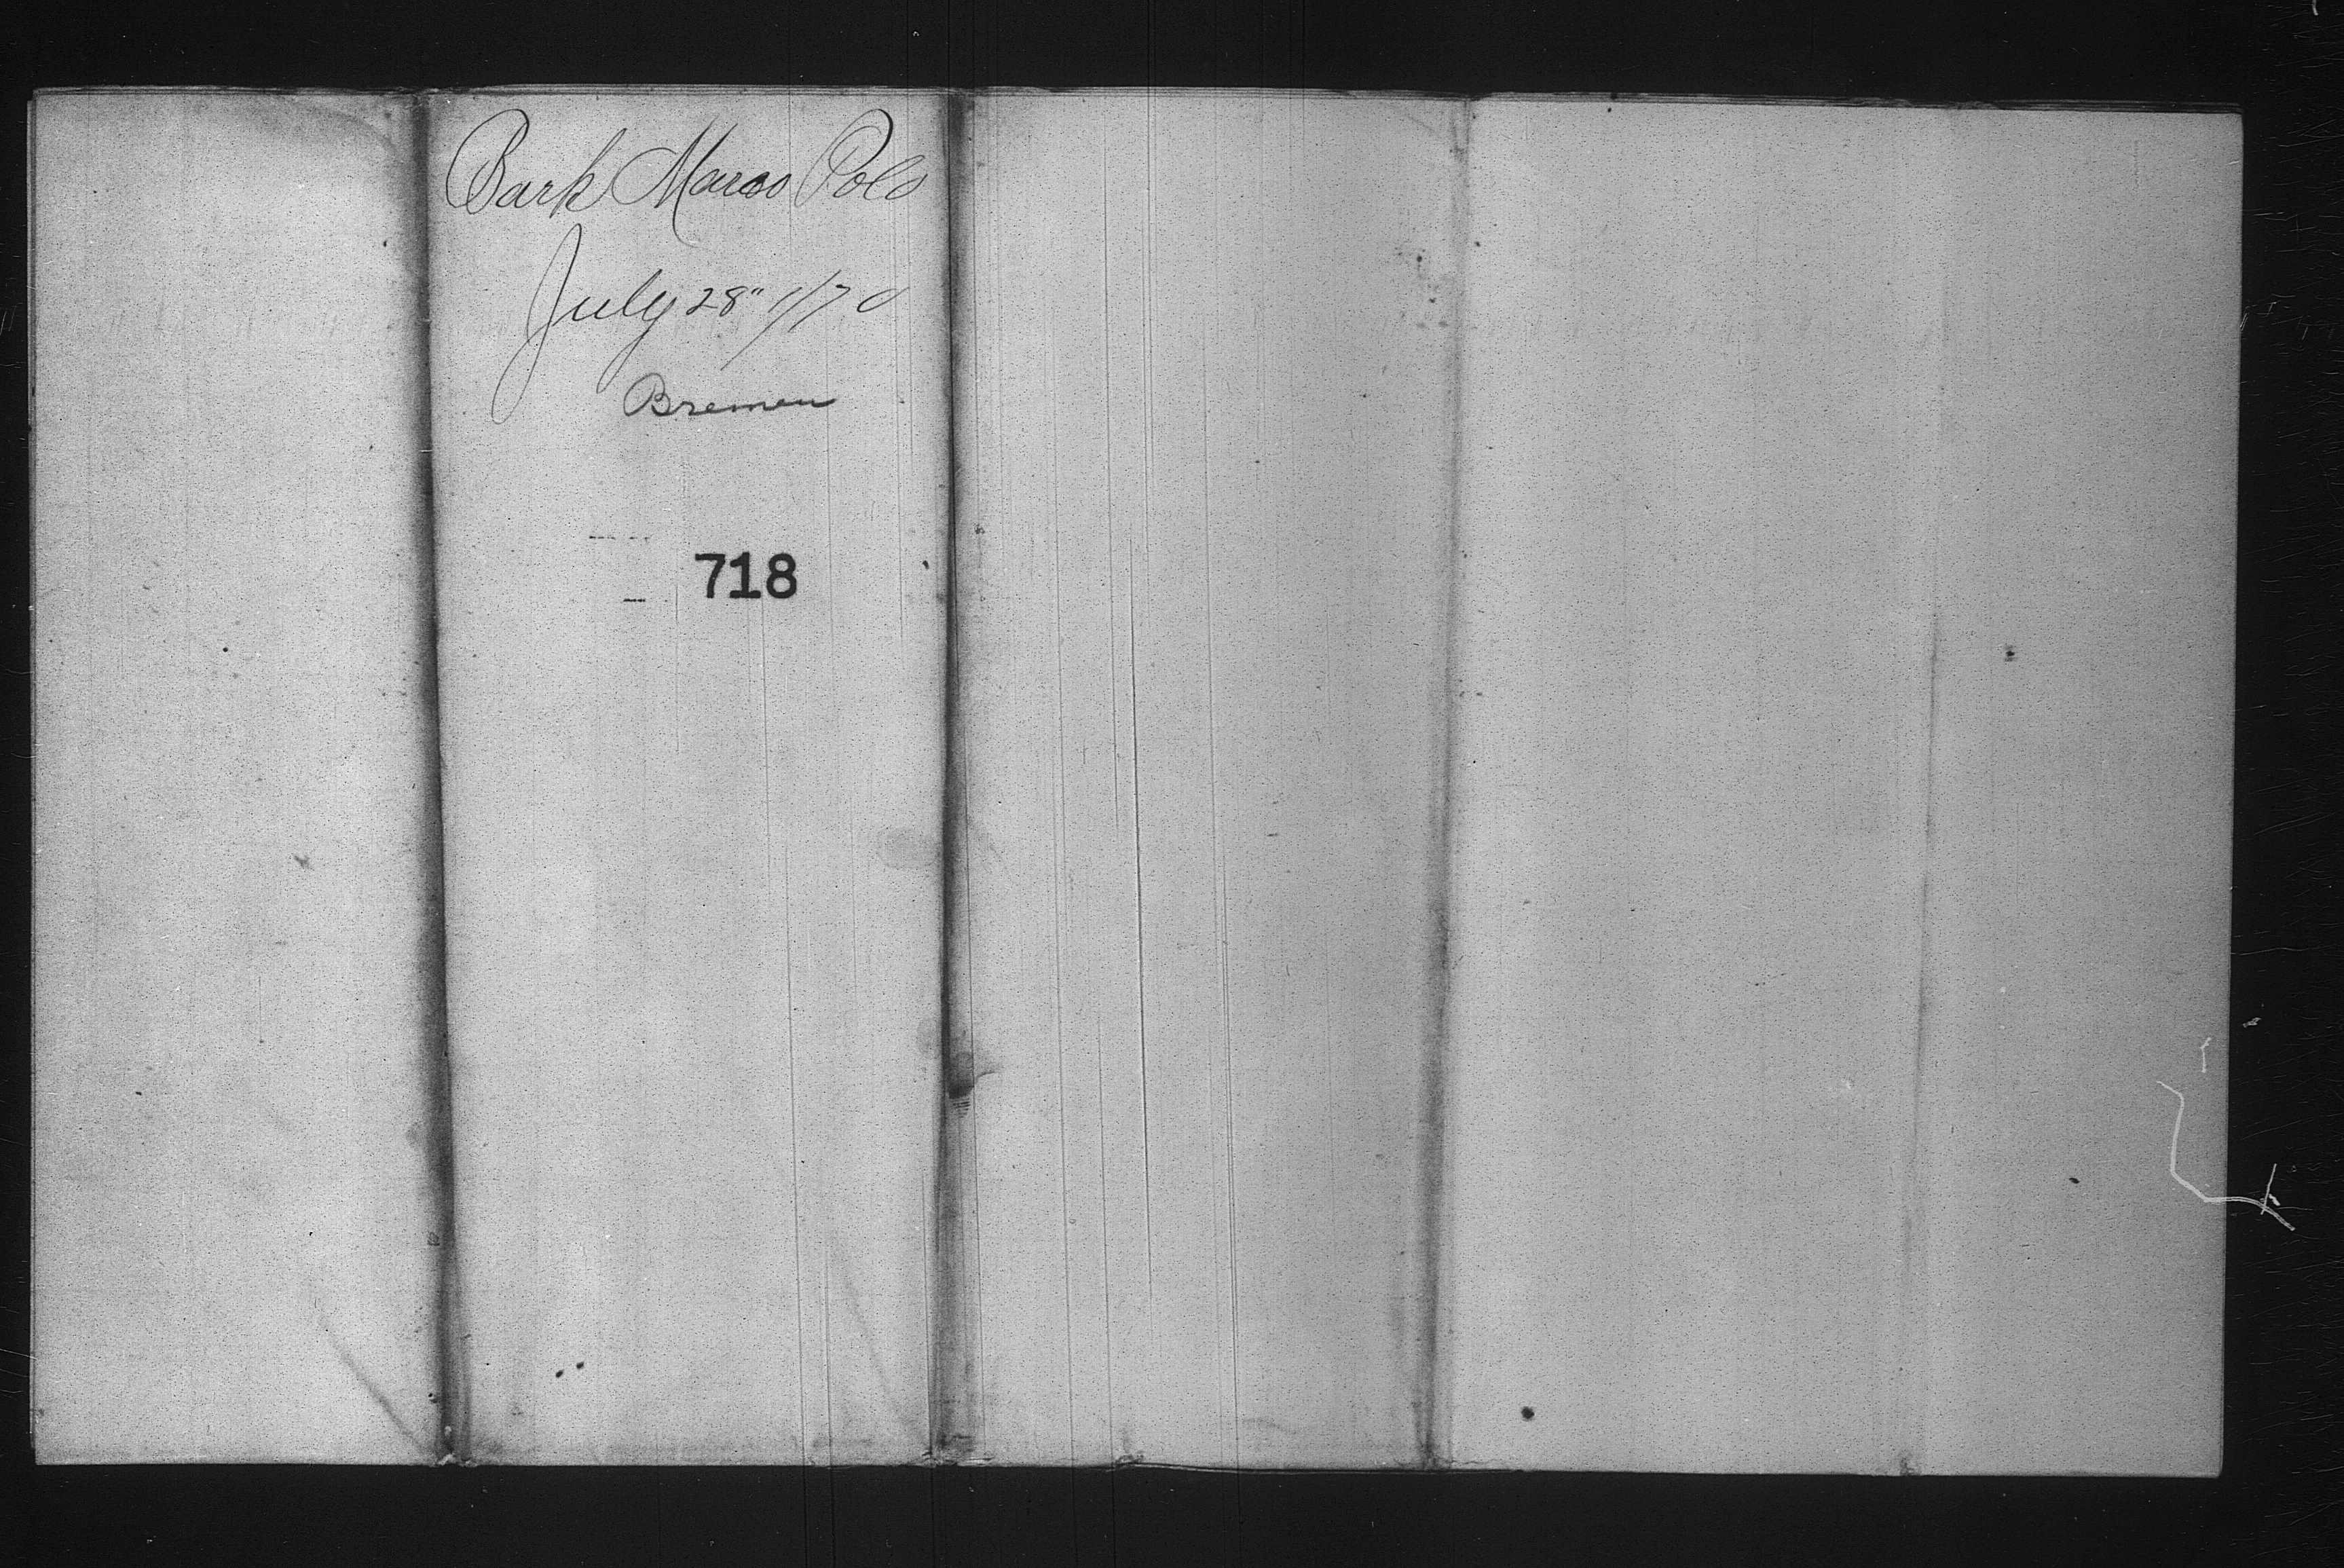 Bark Marco Polo
July 28" 1870
Bremen
718